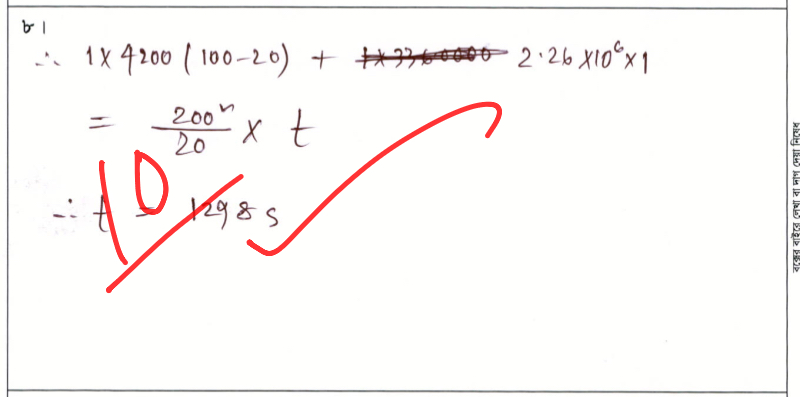 ৮।
∴ 1×4200(100-20) + 2.26×10⁶×1
= 200²/20 × t
∴ t = 1298 s
10
বক্সের বাইরে লেখা বা দাগ দেয়া নিষেধ